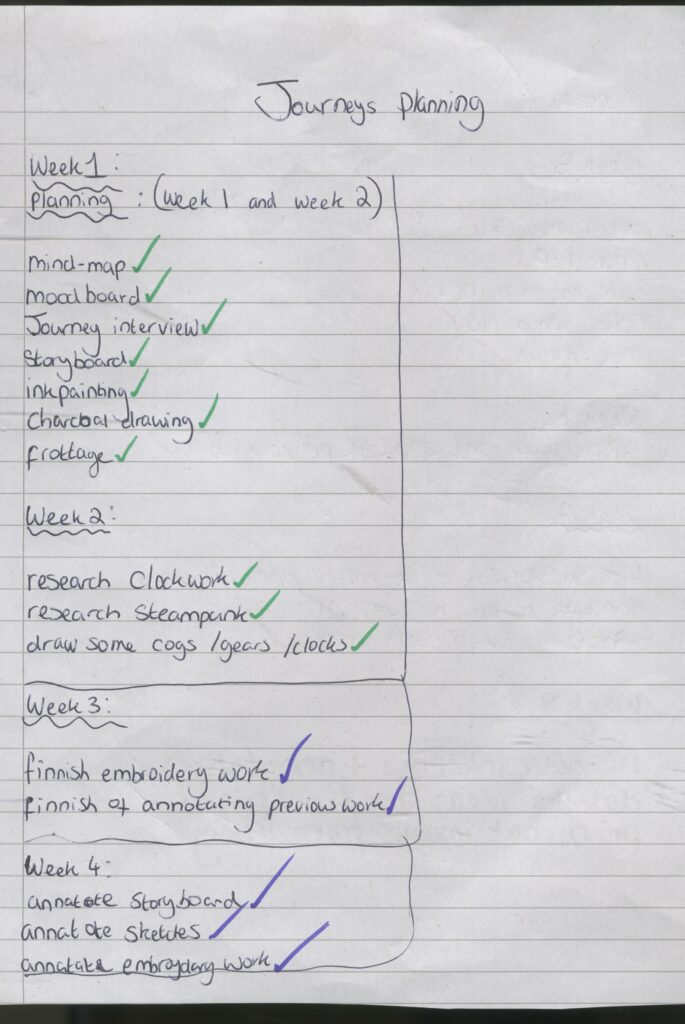 Journeys planning
Week 1:
planning : (week 1 and week 2)
mind-map
moodboard
Journey interview
Storyboard
inkpainting
Charcoal drawing
frottage
Week 2:
research Clockwork
research Steampunk
draw some cogs /gears /clocks
Week 3:
finnish embroidery work
finnish of annotating previous work
Week 4:
annatote storyboard
annatote sketches
annatate embroydary work